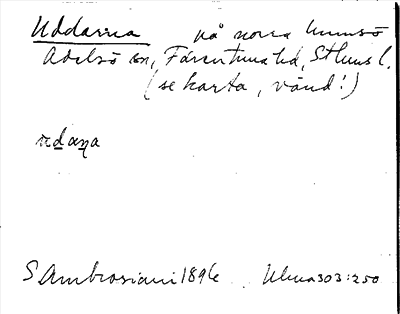 Uddarna på norra Munsö
Adelsö sn, Färentuna hd, Sthms l.
(se karta, vänd!)
S Ambrosiani 1896 Ulma 303:250